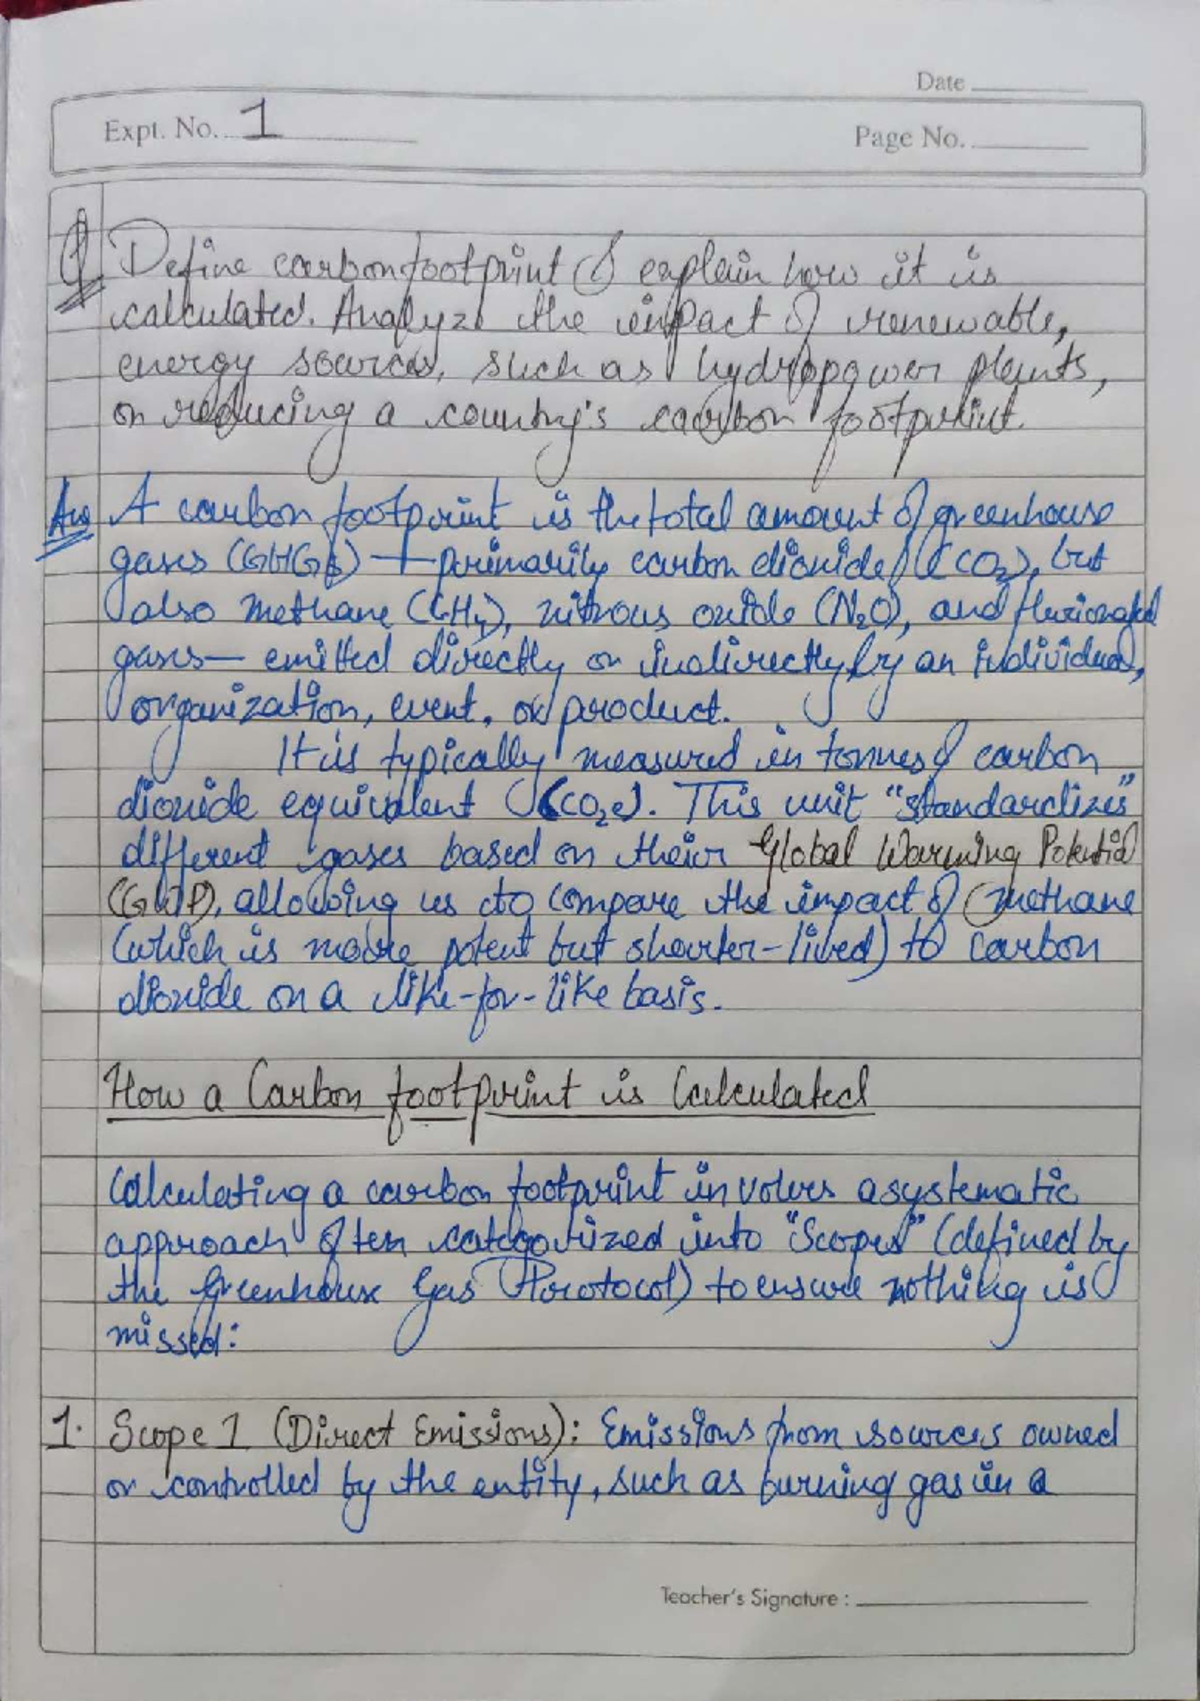 Date
Expt. No. 1
Page No.
Q Define carbon footprint & explain how it is
calculated. Analyze the impact of renewable,
energy sources, such as hydropower plants,
on reducing a country's carbon footprint.
Ans A carbon footprint is the total amount of greenhouse
gases (GHGs) — primarily carbon dioxide (CO₂), but
also methane (CH₄), nitrous oxide (N₂O), and
gases — emitted directly or indirectly by an individual,
organization, event, or product.
It is typically measured in tonnes of carbon
dioxide equivalent (CO₂e). This unit "standardizes"
different gases based on their Global Warming Potential
(GWP), allowing us to compare the impact of methane
(which is more potent but shorter-lived) to carbon
dioxide on a like-for-like basis.
How a Carbon footprint is Calculated
Calculating a carbon footprint involves a systematic
approach often categorized into "Scopes" (defined by
the Greenhouse Gas Protocol) to ensure nothing is
missed:
1. Scope 1 (Direct Emissions): Emissions from sources owned
or controlled by the entity, such as burning gas in a
Teacher's Signature :